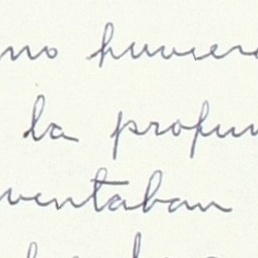 mo huviera
la profun
ventaban